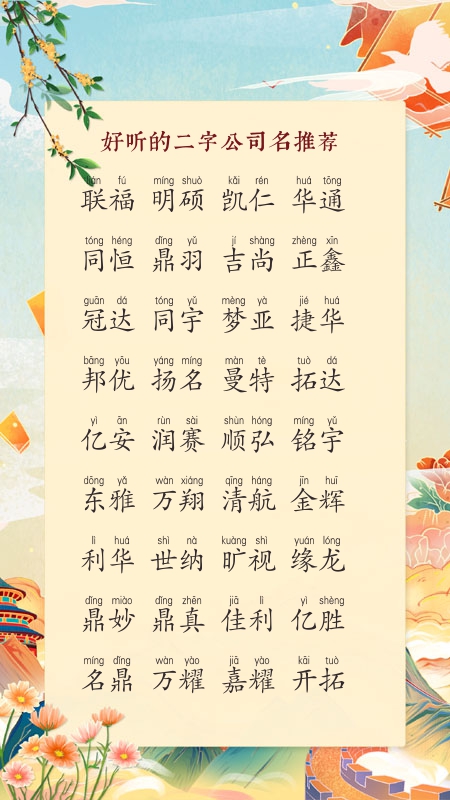 好听的二字公司名推荐
lián fú míng shuò kǎi rén huá tōng
联福 明硕 凯仁 华通
tóng héng dǐng yǔ jí shàng zhèng xīn
同恒 鼎羽 吉尚 正鑫
guān dá tóng yǔ mèng yà jié huá
冠达 同宇 梦亚 捷华
bāng yōu yáng míng màn tè tuò dá
邦优 扬名 曼特 拓达
yì ān rùn sài shùn hóng míng yǔ
亿安 润赛 顺弘 铭宇
dōng yǎ wàn xiáng qīng háng jīn huī
东雅 万翔 清航 金辉
lì huá shì nà kuàng shì yuán lóng
利华 世纳 旷视 缘龙
dǐng miào dǐng zhēn jiā lì yì shèng
鼎妙 鼎真 佳利 亿胜
míng dǐng wàn yào jiā yào kāi tuò
名鼎 万耀 嘉耀 开拓